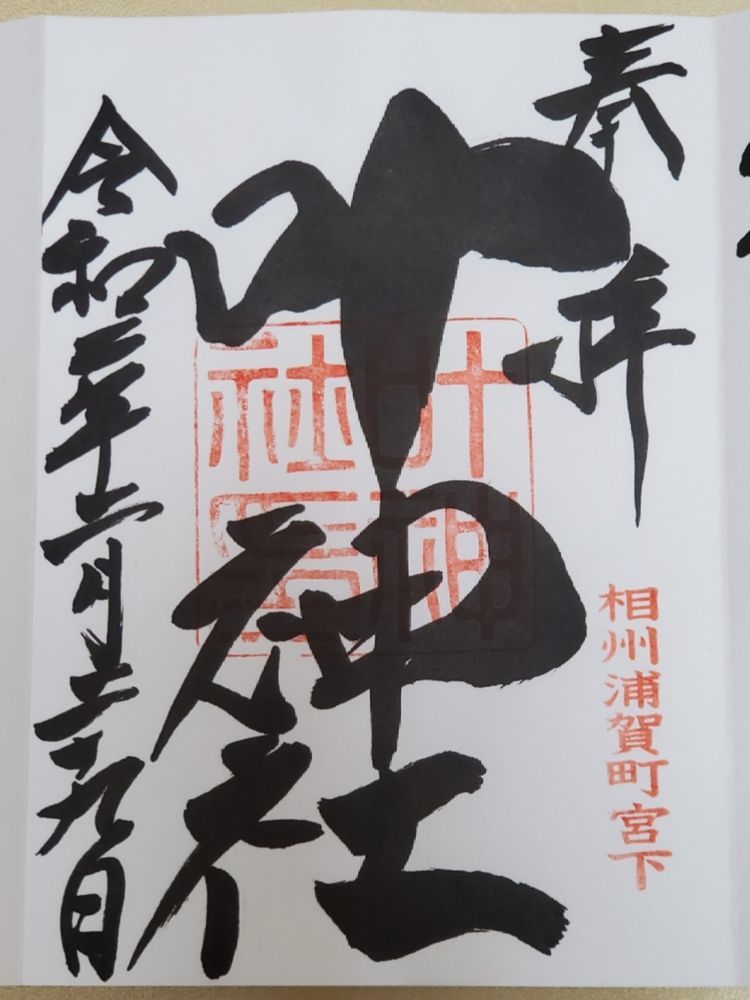 奉拝
相州浦賀町宮下
叶神社
叶神社璽
令和二年二月二十九日